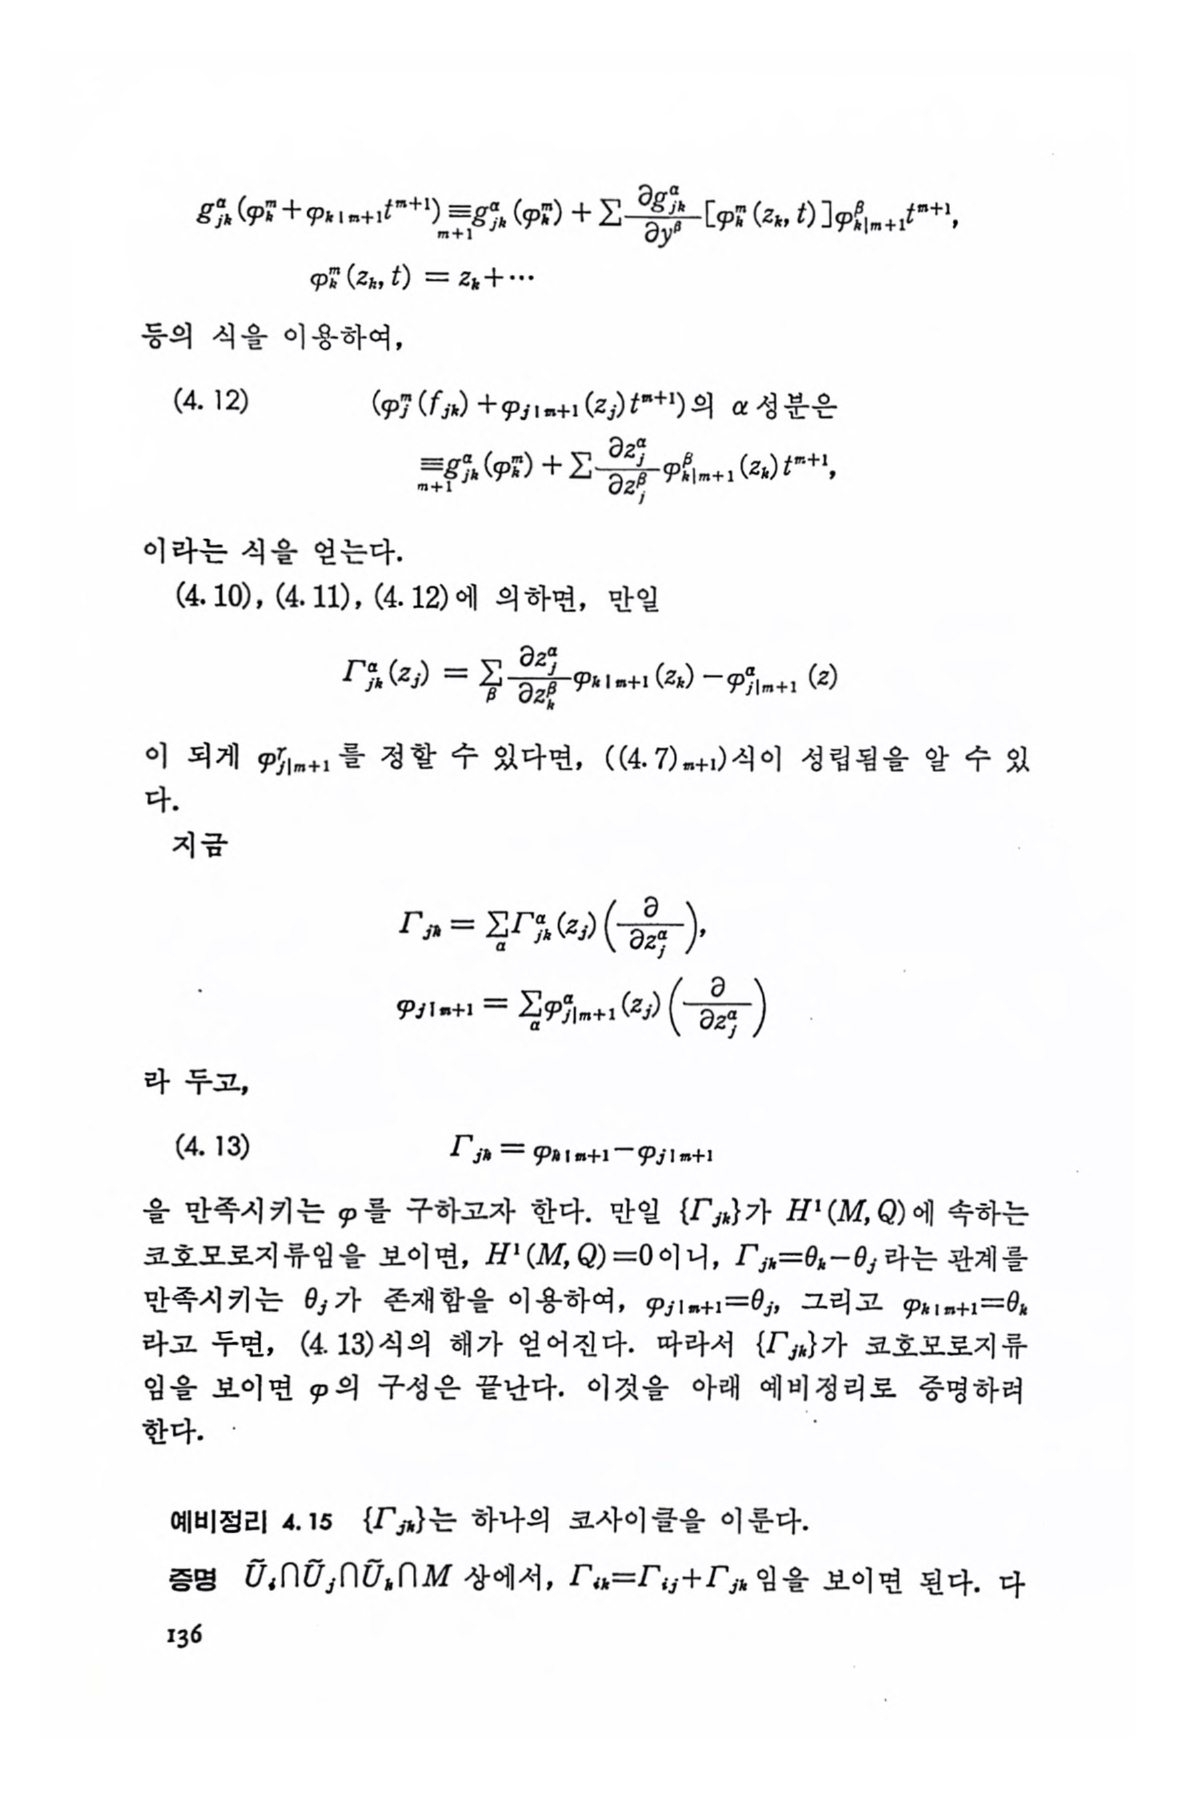 g^α_{jk}(φ^m_k+φ_{k|m+1}t^{m+1}) ≡_{m+1} g^α_{jk}(φ^m_k) + Σ ∂g^α_{jk}/∂y^β [φ^m_k(z_k, t)]φ^β_{k|m+1}t^{m+1},
φ^m_k(z_k, t) = z_k+⋯
등의 식을 이용하여,
(4. 12) (φ^m_j(f_{jk}) + φ_{j|m+1}(z_j)t^{m+1})의 α성분은
≡_{m+1} g^α_{jk}(φ^m_k) + Σ ∂z^α_j/∂z^β_j φ^β_{k|m+1}(z_k)t^{m+1},
이라는 식을 얻는다.
(4. 10), (4. 11), (4. 12)에 의하면, 만일
Γ^α_{jk}(z_j) = Σ_β ∂z^α_j/∂z^β_k φ_{k|m+1}(z_k) − φ^α_{j|m+1}(z)
이 되게 φ^r_{j|m+1}를 정할 수 있다면, ((4. 7)_{m+1})식이 성립됨을 알 수 있
다.
지금
Γ_{jk} = Σ_α Γ^α_{jk}(z_j)(∂/∂z^α_j),
φ_{j|m+1} = Σ_α φ^α_{j|m+1}(z_j)(∂/∂z^α_j)
라 두고,
(4. 13) Γ_{jk} = φ_{k|m+1}−φ_{j|m+1}
을 만족시키는 φ를 구하고자 한다. 만일 {Γ_{jk}}가 H¹(M, Q)에 속하는
코호모로지류임을 보이면, H¹(M, Q)=0이니, Γ_{jk}=θ_k−θ_j라는 관계를
만족시키는 θ_j가 존재함을 이용하여, φ_{j|m+1}=θ_j, 그리고 φ_{k|m+1}=θ_k
라고 두면, (4. 13)식의 해가 얻어진다. 따라서 {Γ_{jk}}가 코호모로지류
임을 보이면 φ의 구성은 끝난다. 이것을 아래 예비정리로 증명하려
한다.
예비정리 4. 15 {Γ_{jk}}는 하나의 코사이클을 이룬다.
증명 Ũ_i∩Ũ_j∩Ũ_k∩M 상에서, Γ_{ik}=Γ_{ij}+Γ_{jk}임을 보이면 된다. 다
136